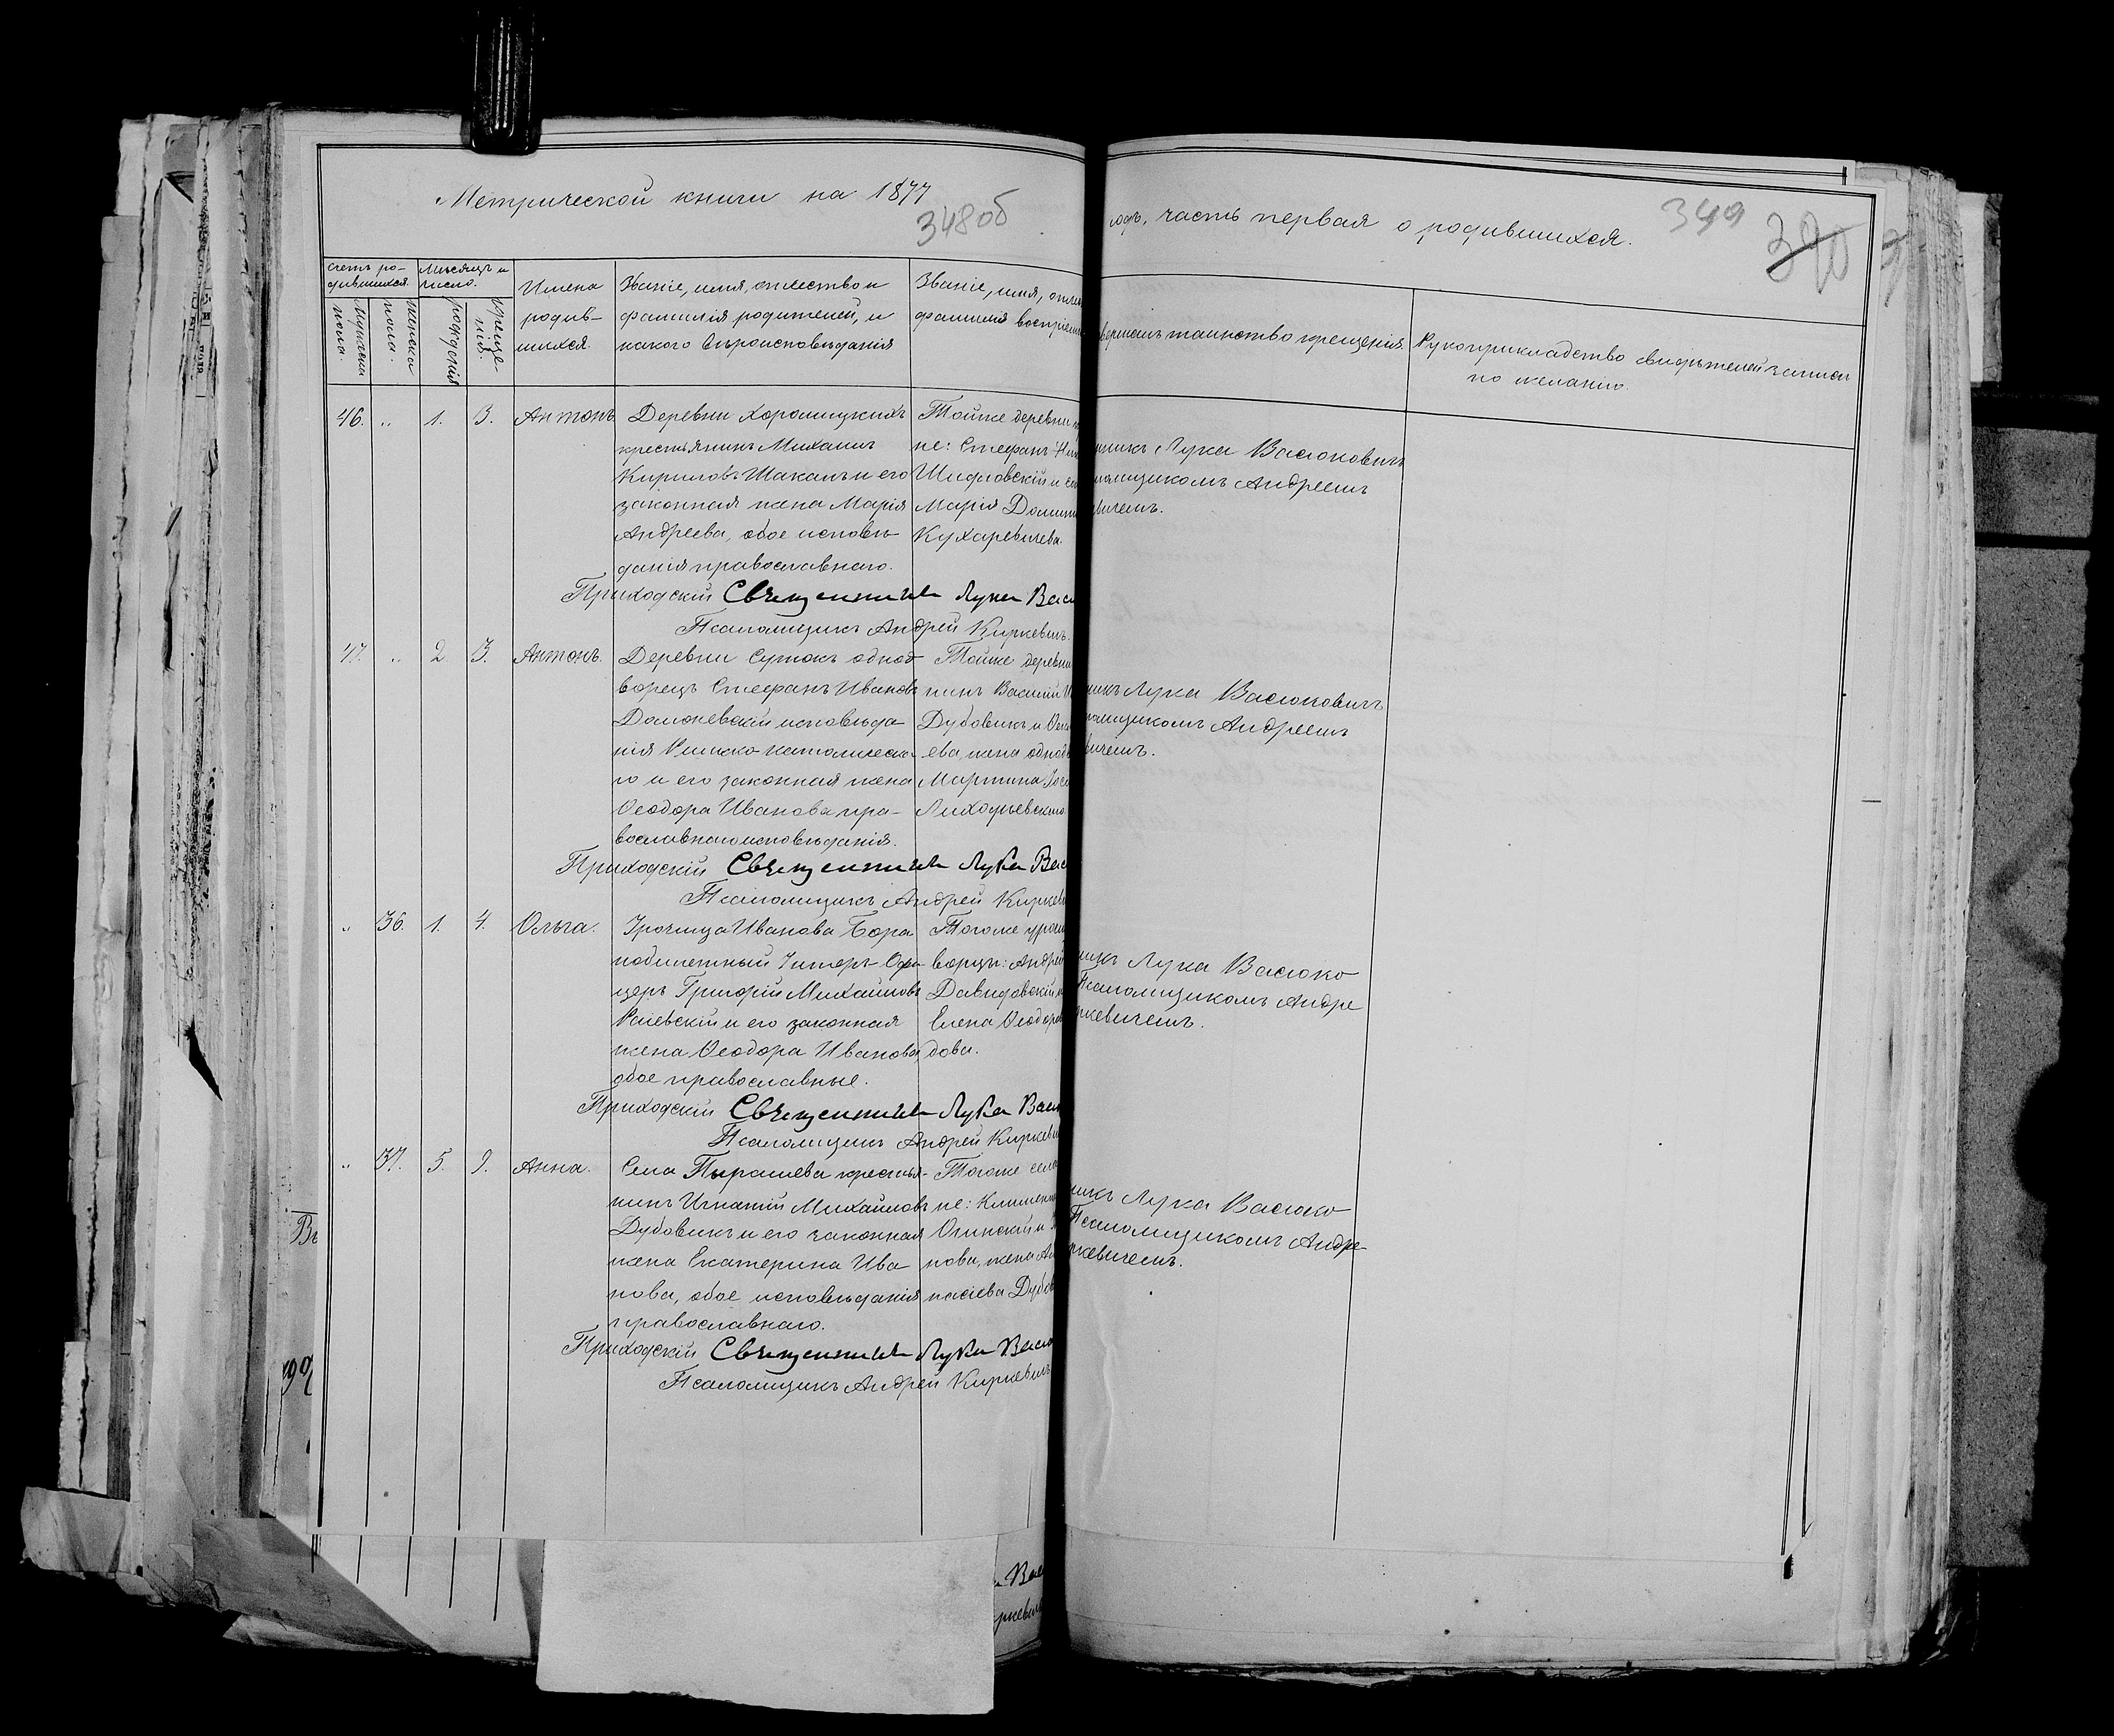 Метрической книги на 1877
348об
годъ, часть первая о родившихся.
349
390
Счетъ ро-
дившихся.
Мѣсяцъ и
число.
Мужеска
пола.
Женска
пола.
Рожденія
Креще
нія.
Имена
родив-
шихся.
Званіе, имя, отчество и
фамилія родителей, и
какого вѣроисповѣданія
Званіе, имя, отче
фамилія воспріем
таинство крещенія.
Рукоприкладство свидѣтелей записи
по желанію.
46. „ 1. 3. Антонъ.
Деревни
крестьянинъ Михаилъ
Кириловъ Шакаль и его
законная жена Марія
Андреева, обое исповѣ-
данія православнаго.
Тойже деревни
не: Стефанъ
и его
Марія
Кухаревичева.
Лука Васюковичъ
Андреемъ
Приходскій Священникъ Лука Васю
Псаломщикъ Андрей Киркевичъ.
47. „ 2. 3. Антонъ.
Деревни Сутокъ однод
ворецъ Стефанъ Ивановъ
исповѣда
нія Римско католическа
го и его законная жена
Ѳеодора Иванова пра-
вославнаго исповѣданія.
Тойже деревни
нинъ Василій
Дубовикъ и
ева, жена однодв
Мартина
Лука Васюковичъ
Андреемъ
Приходскій Священникъ Лука Вас
Псаломщикъ Андрей Киркев
„ 36. 1. 4. Ольга.
Урочища Иванова Бора
подбилетный Унтеръ-Офи
церъ Григорій Михайловъ
Раевскій и его законная
жена Ѳеодора Иванова,
обое православные.
Тогоже уроч
ворцы: Андрей
Давидовскій и
Елена Ѳеодоро
дова.
Лука Васюко
Псаломщикомъ Андре
ркевичемъ.
Приходскій Священникъ Лука Васю
Псаломщикъ Андрей Киркеви
„ 37. 5. 9. Анна.
Села Пырашева крестья-
нинъ Игнатій Михайловъ
Дубовикъ и его законная
жена Екатерина Ива-
нова, обое исповѣданія
православнаго.
Тогоже села
не:
и
нова, жена
Дубов
Лука Васюко
Псаломщикомъ Андре-
ркевичемъ.
Приходскій Священникъ Лука Васю
Псаломщикъ Андрей Киркевичъ